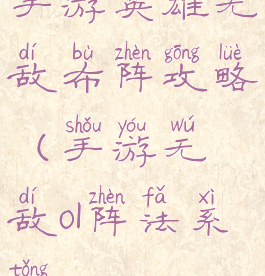 手游英雄无
dí bù zhèn gōng lüè
敌布阵攻略
shǒu yóu wú
(手游无
dí zhèn fǎ xì
敌01阵法系
tǒng